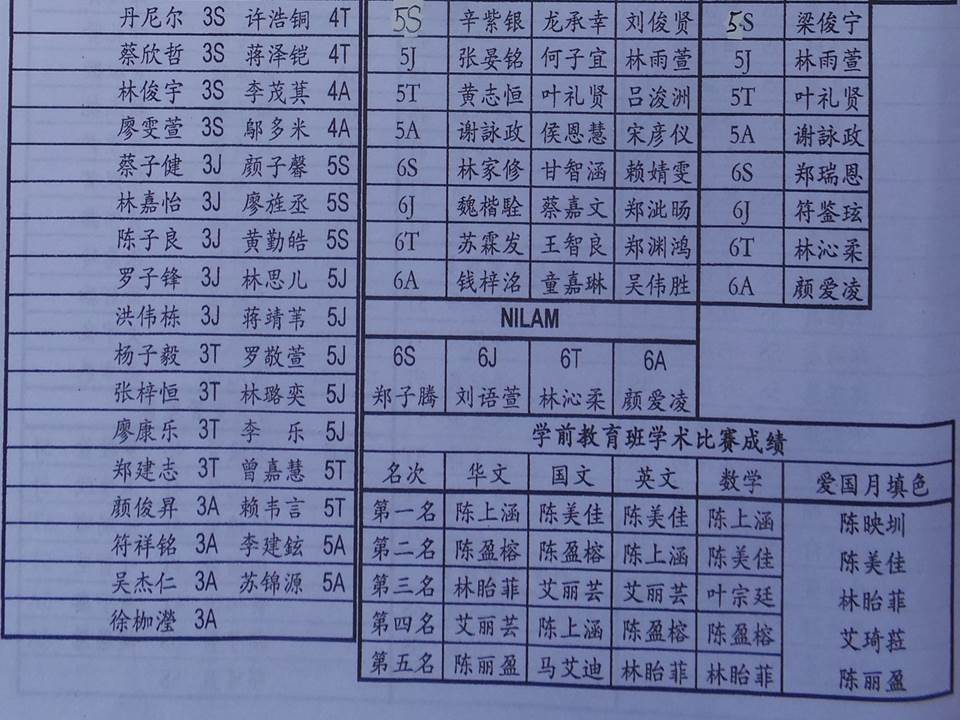 丹尼尔 3S 许浩铜 4T
蔡欣哲 3S 蒋泽铠 4T
林俊宇 3S 李茂萁 4A
廖雯萱 3S 邬多米 4A
蔡子健 3J 颜子馨 5S
林嘉怡 3J 廖旌丞 5S
陈子良 3J 黄勤皓 5S
罗子锋 3J 林思儿 5J
洪伟栋 3J 蒋靖苇 5J
杨子毅 3T 罗敬萱 5J
张梓恒 3T 林璐奕 5J
廖康乐 3T 李 乐 5J
郑建志 3T 曾嘉慧 5T
颜俊昇 3A 赖韦言 5T
符祥铭 3A 李建鉉 5A
吴杰仁 3A 苏锦源 5A
徐枷瀅 3A
5S 辛紫银 龙承幸 刘俊贤 5S 梁俊宁
5J 张晏铭 何子宜 林雨萱 5J 林雨萱
5T 黄志恒 叶礼贤 吕浚洲 5T 叶礼贤
5A 谢詠政 侯恩慧 宋彦仪 5A 谢詠政
6S 林家修 甘智涵 赖婧雯 6S 郑瑞恩
6J 魏楷駩 蔡嘉文 郑泚旸 6J 符鉴玹
6T 苏霖发 王智良 郑渊鸿 6T 林沁柔
6A 钱梓洺 童嘉琳 吴伟胜 6A 颜爱凌
NILAM
6S 6J 6T 6A
郑子腾 刘语萱 林沁柔 颜爱凌
学前教育班学术比赛成绩
名次 华文 国文 英文 数学 爱国月填色
第一名 陈上涵 陈美佳 陈美佳 陈上涵 陈映圳
第二名 陈盈榕 陈盈榕 陈上涵 陈美佳 陈美佳
第三名 林胎菲 艾丽芸 艾丽芸 叶宗廷 林胎菲
第四名 艾丽芸 陈上涵 陈盈榕 陈盈榕 艾琦菈
第五名 陈丽盈 马艾迪 林胎菲 林胎菲 陈丽盈